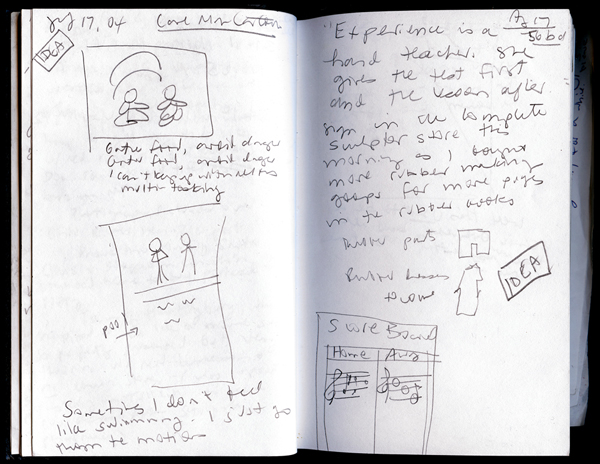 July 17, 04 Cave Man Cartoon
IDEA
Gather food, avoid danger
Gather food, avoid danger
I can't keep up with all this
multi tasking
pool
Sometimes I don't feel
like swimming. I just go
thru the motions
"Experience is a
hard teacher. She
gives the test first
and the lesson after
sign in the complete
sculptor store this
morning as I bought
more rubber making
goops for more pigs
in the rubber works
Rubber parts
Rubber
to come
IDEA
Score Board
Home Away